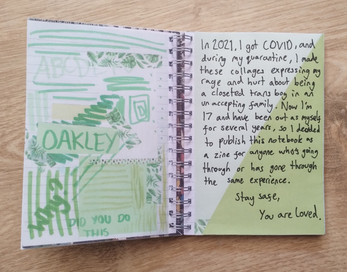 ABCD
D
OAKLEY
Why?
DID YOU DO
THIS
In 2021, I got COVID, and
during my quarantine, I made
these collages expressing my
rage and hurt about being
a closeted trans boy in an
unaccepting family. Now I'm
17 and have been out as myself
for several years, so I decided
to publish this notebook as
a zine for anyone who's going
through or has gone through
the same experience.
Stay safe,
You are Loved.